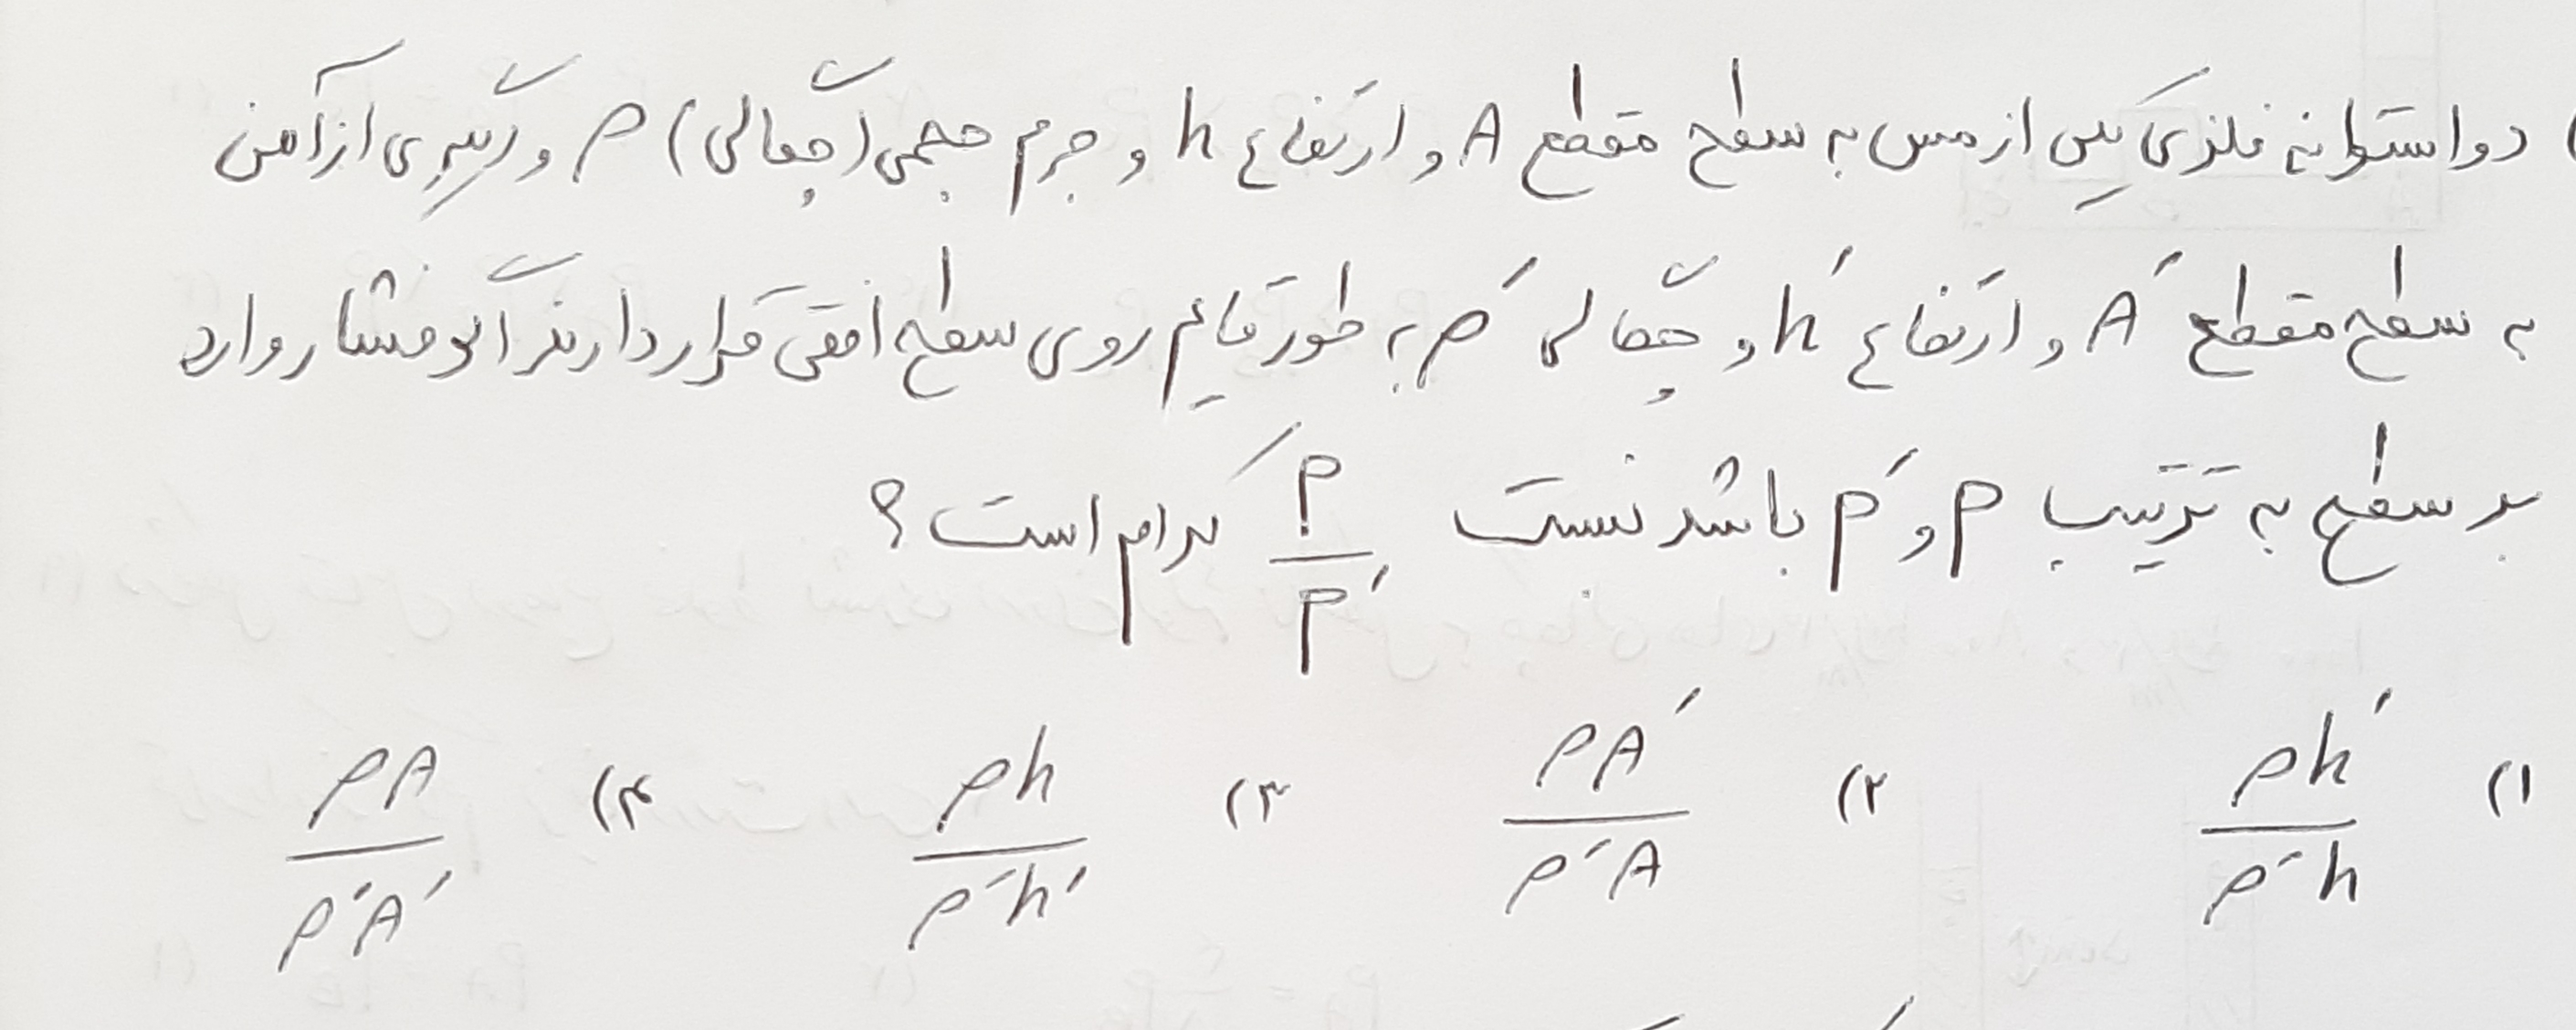 ) دو استوانه فلزی یکی از مس به سطح مقطع A و ارتفاع h و جرم حجمی (چگالی) ρ و دیگری از آهن
به سطح مقطع A′ و ارتفاع h′ و چگالی ρ′ به طور قایم روی سطح افقی قرار دارند اگر فشار وارد
بر سطح به ترتیب P و P′ باشد نسبت P/P′ کدام است؟
۱) ρh′/ρ′h ۲) ρA′/ρ′A ۳) ρh/ρ′h′ ۴) ρA/ρ′A′